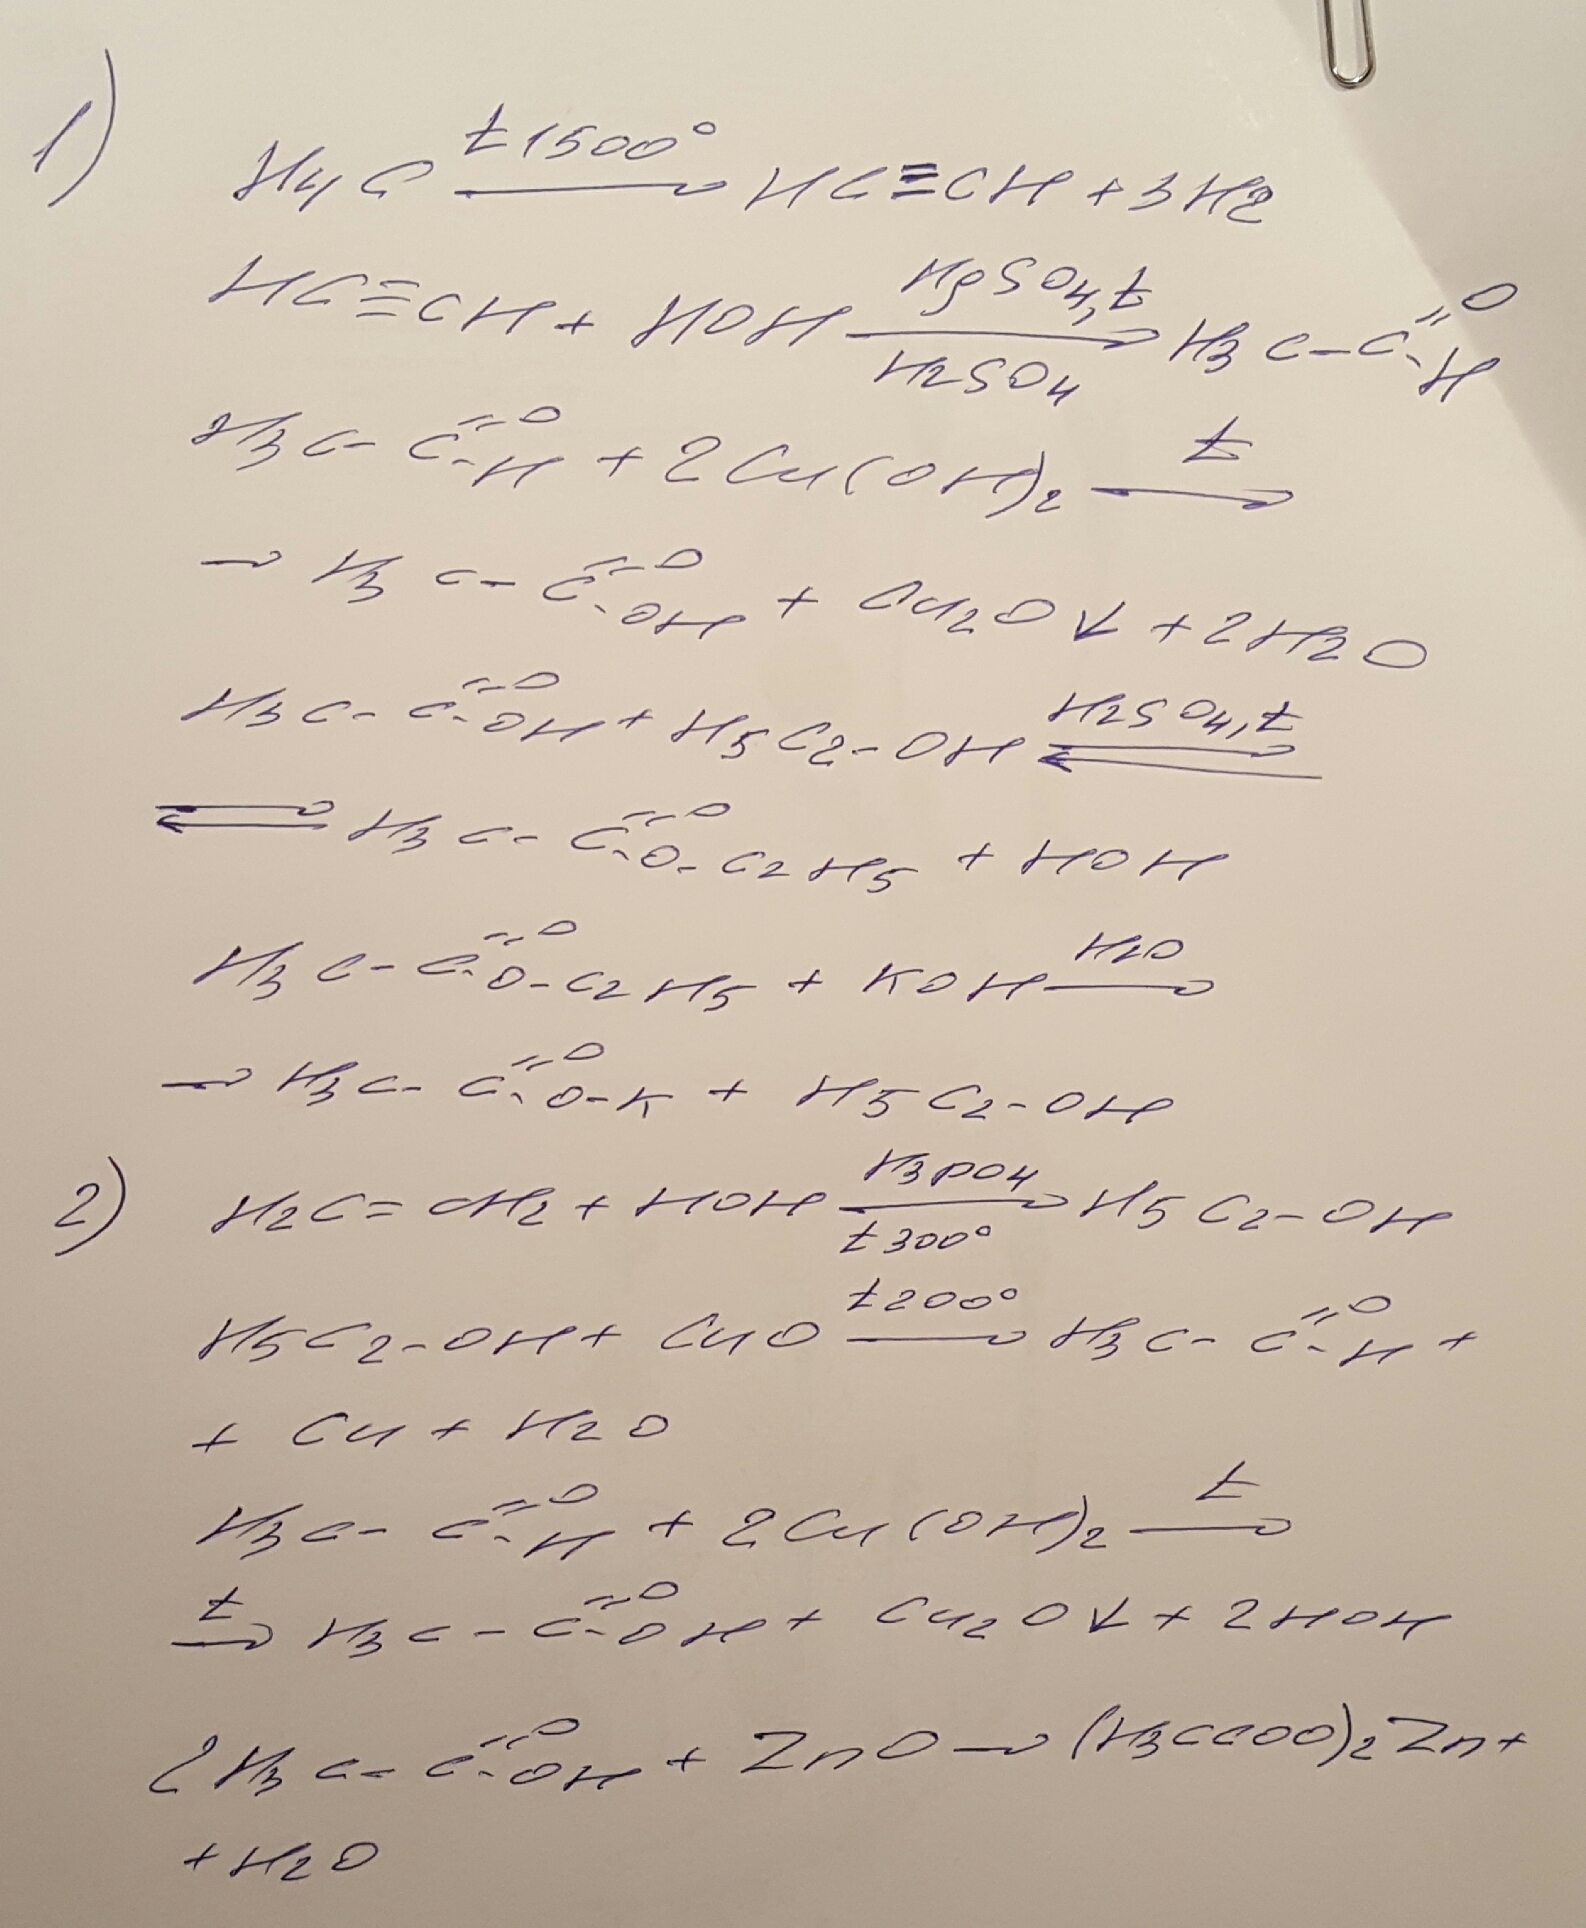 1) H4C t 1500° → HC≡CH + 3H2
HC≡CH + HOH HgSO4, t → H2SO4 H3C-C=O-H
H3C-C=O-H + 2Cu(OH)2 t →
→ H3C-C=O-OH + Cu2O↓ + 2H2O
H3C-C=O-OH + H5C2-OH H2SO4, t ⇄
⇄ H3C-C=O-O-C2H5 + HOH
H3C-C=O-O-C2H5 + KOH H2O →
→ H3C-C=O-O-K + H5C2-OH
2) H2C=CH2 + HOH H3PO4 → t 300° H5C2-OH
H5C2-OH + CuO t 200° → H3C-C=O-H +
+ Cu + H2O
H3C-C=O-H + 2Cu(OH)2 t →
t → H3C-C=O-OH + Cu2O↓ + 2HOH
2H3C-C=O-OH + ZnO → (H3CCOO)2Zn +
+ H2O